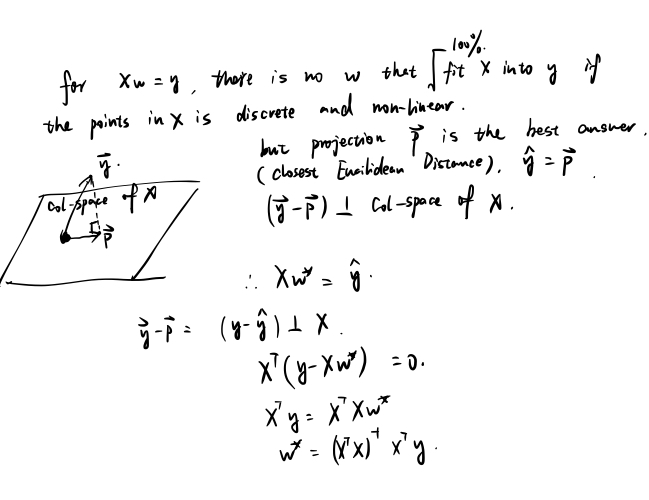 for Xw = y, there is no w that 100% fit X into y if
the points in X is discrete and non-linear.
but projection p⃗ is the best answer.
(closest Eucilidean Distance). ŷ = p⃗.
(y⃗ - p⃗) ⊥ col-space of X.
y⃗.
col-space of X
p⃗
∴ Xw* = ŷ.
y⃗ - p⃗ = (y - ŷ) ⊥ X.
Xᵀ(y - Xw*) = 0.
Xᵀy = XᵀXw*
w* = (XᵀX)⁻¹ Xᵀy.